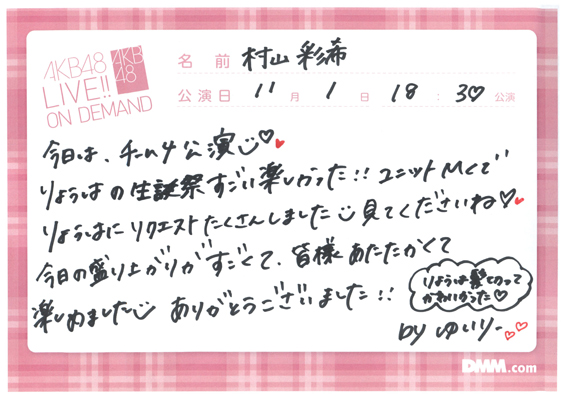 AKB48
LIVE!!
ON DEMAND
AKB
48
名前 村山 彩希
公演日 11月 1日 18:30 公演
今日は、チーム4公演じ♡♥
りょうはの生誕祭すごい楽しかった!! ユニットMCで
りょうはにリクエストたくさんしました 見てくださいね♡♥
今日の盛り上がりがすごくて、皆様あたたかくて
楽しめました ありがとうございました!!
りょうは髪くるって
かわいかった♡
by ゆいりー♡♡
DMM.com